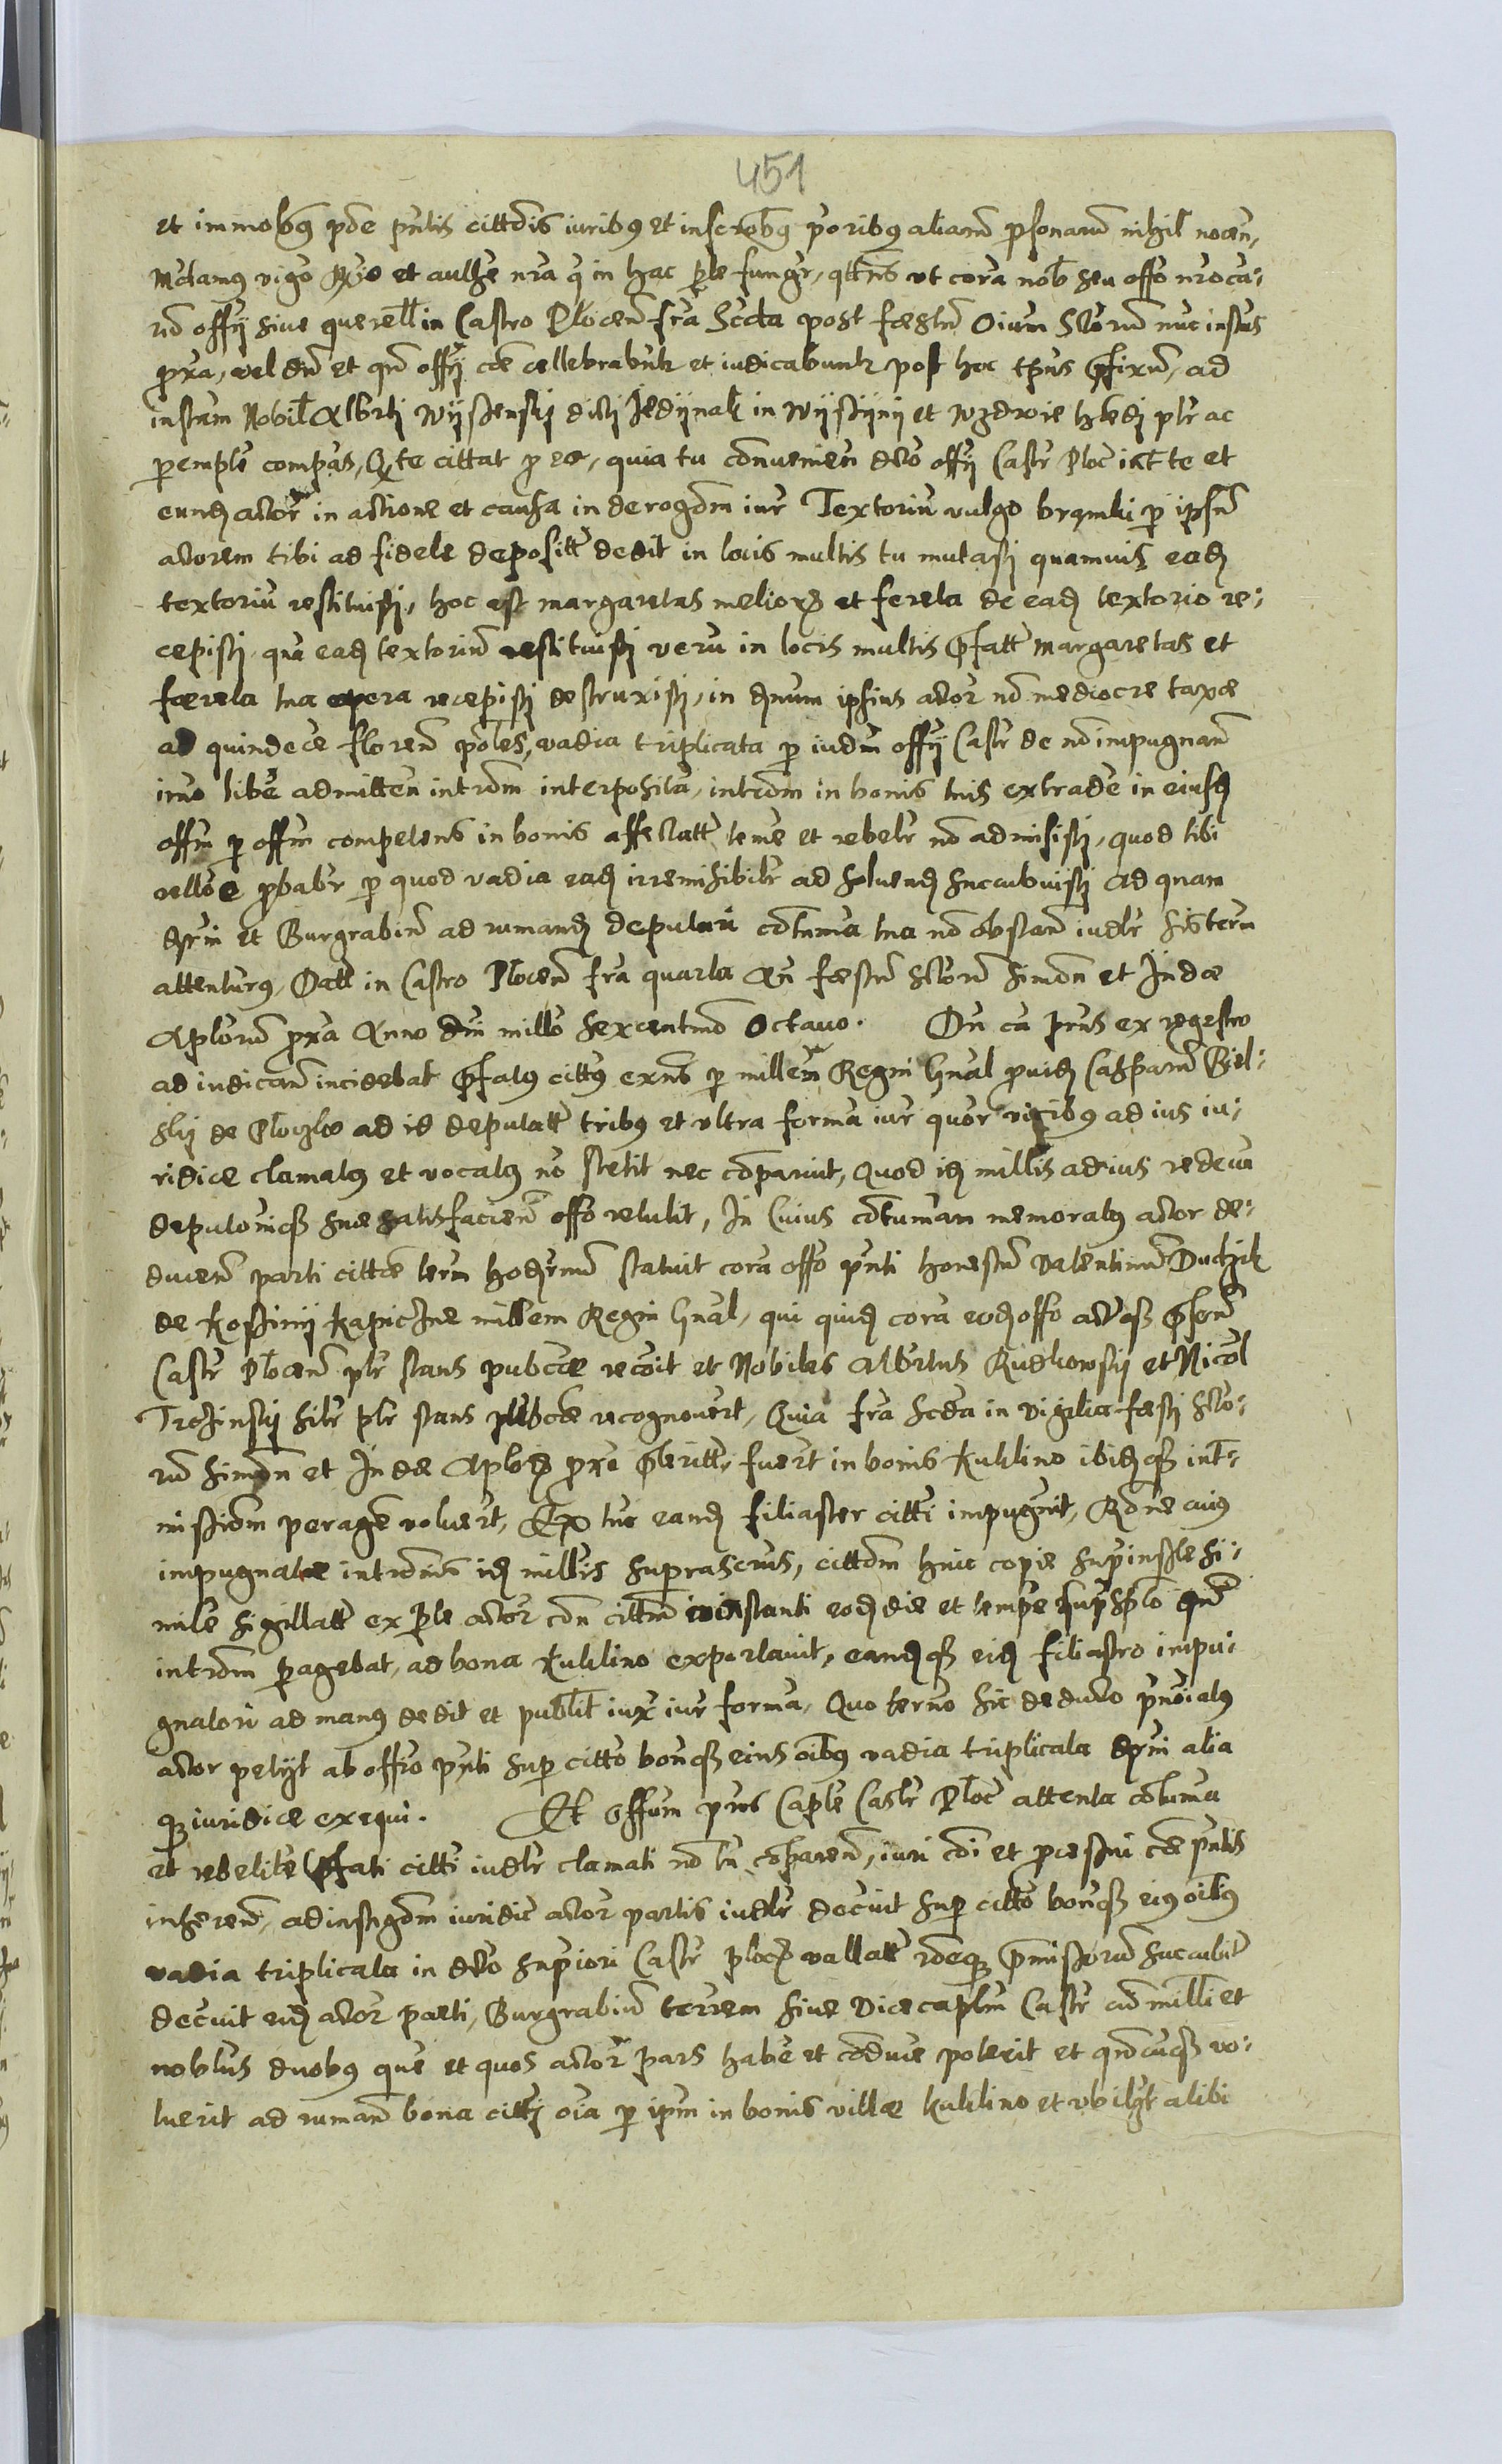 451
et immobq pde pntis cittois iuribq et inscrobq prioribq aliarum psonarum nihil nocen,
Mdamq rigo Rgio et aulhe nra q in hac pte fungr, qtns vt cora nob seu offo nro ca:
nd offy sive querell in Castro Plocen fra Scda post festum Oium Storum nuc instus
pxa, vel dum et qn offy cae cellebrabutr et iudicabuntr post hoc tpus pfixum, ad
instam Nobil Albrti Wyssensky dicti Jedynak in Wyssyny et Wzdroie hredi pltr ac
peempte compas, Q te cittat p eo, quia tu convenien dco offy Castr Ploc int te et
eund actor in actione et causa in derogom iur Textorium vulgo bramki p ipsum
actorem tibi ad fidele deposittu dedit in locis multis tu mutasti quamvis ead
textoriu restituisti, hoc est margaretas meliores et ferela de ead textorio re:
cepisti qua ead textorium restituisti veru in locis multis pfatt margaretas et
ferela tua opera recepisti destruxisti, in dnum ipsius actor no mediocre taxae
ad quindece floren poles, vadia triplicata p iudm offy Castr de no impugnan
imo libe admitten introm interposita, introm in bonis tuis extrade in eiusd
offm p offm competens in bonis affectatt teme et rebelr no admisisti, quod tibi
rellone pbabr p quod vadia ead irremisibilr ad soluend succubuisti ad quam
dprm et Burgrabium ad rumand deputari contuma tua no obstan iudlr sis term
attenturq, Datt in Castro Plocen fra quarta An festum Storum Simon et Judae
Aplorum pxa Anno dni millo sexcentmo Octavo. Du ca prns ex regestro
ad iudican incidebat pfatq cittq exns p millem Regni Gnal provid Casparum Biel:
sky de Plocko ad id deputatt tribq et vltra forma iur quor vicibq ad ius iu:
ridice clamatq et vocatq no stetit nec comparuit, Quod id millis ad ius redeun
deputoniq sue satisfacien offo retulit, In Cuius contuman memoratq actor de:
ducen parti cittae term hodiernum statuit cora offo pnti honestum Valentinum Duchik
de Kossiny Kapiczne millem Regni Gnal, qui quid cora eod offo actisq pntbus
Castr Plocen pltr stans pubcae recoit et Nobiles Albrtus Rudkowsky et Nicol
Trczinsky silr pltr stans pubcae recognovert, Quia fra scda in vigilia festi Sto:
rum Simon et Judae Aplor pxe pteritt, fuert in bonis Kuklino ibidq int:
missiom peragere voluert, Ex tuc eand filiaster citti impugnit, Rone cuiq
impugnatae introms id millis suprascrus, cittom huic copie suprinste si:
mile sigillatt ex pte actor con cittum in instanti eod die et tempe suprspto qum
introm pagebat, ad bona Kuklino exportavit, eandq eid filiastro impu:
gnatori ad manq dedit et publit iux iur forma, Quo termo sic deducto pnoiatq
actor petyt ab offio pnti sup citto bonisq eius oibq vadia triplicata dprm alia
q iuridice exequi. Et Offum pns Capte Castr Ploc attenta contuma
et rebelite pfati citti iudlr clamati no tn comparen, iuri coi et pcessui cae pntis
inheren, ad instigom iuridic actor partis iudlr decrvit sup citto bonisq eiq oibq
vadia triplicata in dco supiori Castr ploc vallatt roneq pmissorum succubit
decrvit eid actor parti, Burgrabium terrem sive Vicecaptm Castr cum milli et
noblus duobq que et quos actor pars habe et conduce poterit et quncuq vo:
luerit ad ruman bona citti oia p ipm in bonis villae Kuklino et vbilibt alibi